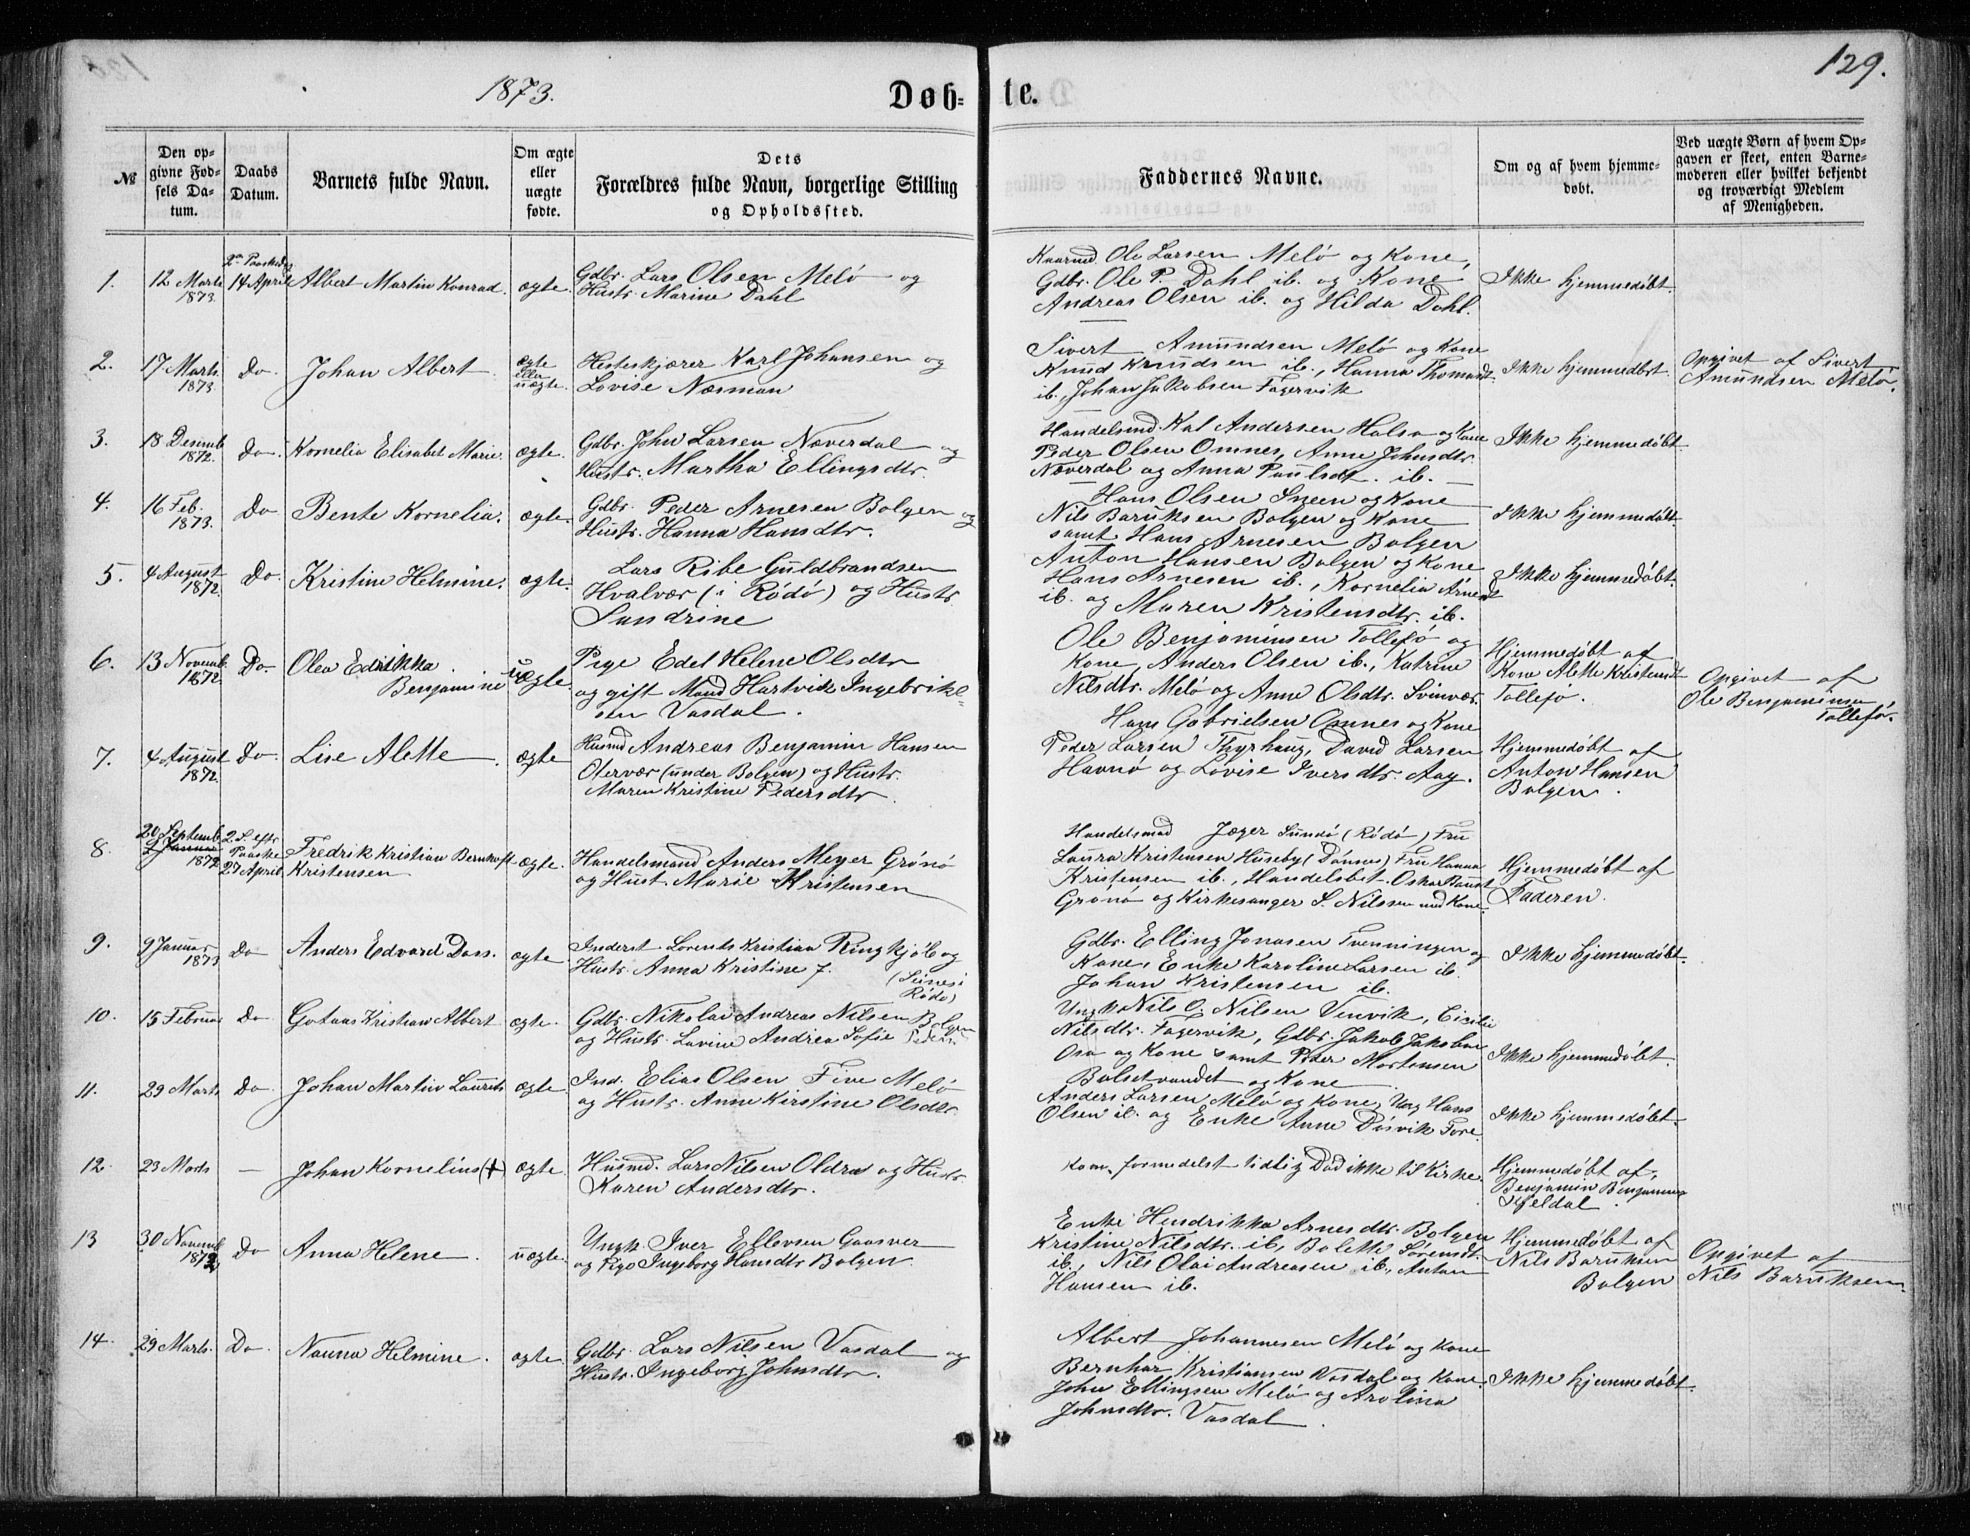 1873.
Døb-
te.
129.
№
Den op-
givne Fød-
sels Da-
tum.
Daabs
Datum.
Barnets fulde Navn.
Om ægte
eller
uægte
fødte.
Dets
Forældres fulde Navn, borgerlige Stilling
og Opholdssted.
Faddernes Navne.
Om og af hvem hjemme-
døbt.
Ved uægte Børn af hvem Op-
gaven er skeet, enten Barne-
moderen eller hvilket bekjendt
og troværdigt Medlem
af Menigheden.
1.
12 Marts
1873.
14 April
Albert Martin Konrad.
ægte.
Gdbr. Lars Olsen Melö og
Hustr. Marine Dahl
Ole Larsen Melö og Kone,
Gdbr. Ole P. Dahl ib. og Kone
Andreas Olsen ib. og Hilda Dahl.
Ikke hjemmedøbt.
2.
17 Marts
1873
Do
Johan Albert
ægte
eller
uægte
Hesteskjærer Karl Johansen og
Lovise Næsman
Sivert Amundsen Melö og Kone
Knud Knudsen ib., Hanna Thomasdt.
ib., Johan Jakobsen Fagervik
Ikke hjemmedøbt.
Opgivet af Sivert
Amundsen Melö.
3.
18 Desemb
1872.
Do
Kornelia Elisabet Marie.
ægte.
Gdbr. John Larsen Næverdal og
Hustr. Martha Ellingsdtr.
Handelsmd Andersen Halsa og Kone
Peder Olsen Omnes, Anne Johnsdtr.
Næverdal og Anna Paulsdt. ib.
Ikke hjemmedøbt
4.
16 Feb.
1873.
Do
Bente Kornelia.
ægte.
Gdbr. Peder Arnesen Bolgen og
Hustr. Hanna Hansdtr.
Hans Olsen Sneen og Kone
Nils Baruksen Bolgen og Kone
samt Hans Arnesen Bolgen
Ikke hjemmedøbt
5.
4 August
1872.
Do.
Kristine Helmine.
ægte.
Lars Ribe Guldbrandsen
Hvalvær (i Rödö) og Hustr.
Sandrine
Anton Hansen Bolgen og Kone
Hans Arnesen ib., Kornelia Arnesdt
ib. og Maren Kristensdtr. ib.
Ikke hjemmedøbt.
6.
13 Novemb.
1872.
Do.
Olea Edrikka
Benjamine
uægte.
Pige Edel Helene Olsdtr
og gift Mand Hartvik Ingebrikt-
sen Vasdal.
Ole Benjaminsen Tollefö og
Kone, Anders Olsen ib., Katrine
Nilsdtr. Melö og Anne Olsdtr. Svinvær.
Hjemmedøbt af
Kone Alette Kristensdt
Tollefö.
Opgivet af
Ole Benjaminsen
Tollefö.
7.
4 August
1872.
Do
Lise Alette
ægte
Husmd Andreas Benjamin Hansen
Otervær (under Bolgen) og Hustr.
Maren Kristine Pedersdtr.
Hans Gabrielsen Omnes og Kone
Peder Larsen Thyrhaug, David Larsen
Havnö og Lovise Iversdtr Aag.
Hjemmedøbt af
Anton Hansen
Bolgen.
8.
20 Septemb
1872
2 S. eftr
Paaske
27 April
Fredrik Kristian Bernhoft
Kristensen
ægte.
Handelsmand Anders Meyer Grönö
og Hust. Marie Kristensen
Handelsmad Jæger Sundö (Rödö) Fru
Laura Kristensen Huseby (Dönnes) Fru Hanna
Kristensen ib., Handelsbet. Oskar
Grönö og Kirkesanger S. Nilssen med Kone.
Hjemmedøbt af
Faderen.
9.
9 Januar
1873
Do
Anders Edvard Dass.
ægte
Inderst Lorents Kristian Ringkjöb og
Hustr. Anna Kristine J.
Rödö)
Gdbr. Elling Jonasen Tvenningen og
Kone, Enke Karoline Larsen ib.
Johan Kristensen ib.
Ikke hjemmedøbt.
10.
15 Februar
Do
Gotaas Kristian Albert
ægte.
Gdbr. Nikolai Andreas Nilsen Bolgen
og Hustr. Lavine Andrea Sofie Peders.
Ungk Nils Nilsen Venvik, Cicilie
Nilsdtr. Fagervik, Gdbr. Jakob Jakobsen
Osa og Kone samt Peder Mortensen
Bolsetvandet og Kone
Ikke hjemmedøbt.
11.
29 Marts
Do
Johan Martin Laurits
ægte
Ind. Elias Olsen Five Melö
og Hustr. Anne Kirstine Olsdtr.
Anders Larsen Melö og Kone, Ung Hans
Olsen ib. og Enke Anne Dösvik Fore
Ikke hjemmedøbt.
12.
23 Marts
—
Johan Kornelius (+)
ægte.
Husmd. Lars Nilsen Oldra og Hustr.
Karen Andersdtr.
Kom formedelst tidlig Död ikke til Kirke
Hjemmedøbt af,
Benjamin Benjamins
13
30 Novemb
1872
Do
Anna Helene.
uægte.
Ungk. Iver Ellevsen Gaasvær
og Pige Ingeborg Hansdtr Bolgen.
Enke Hendrikka Arnesdtr. Bolgen
Kristine Nilsdtr. ib, Bolette Sörensdt.
ib., Nils Olai Andreasen ib., Anton
Hansen ib.
Hjemmedøbt af
Nils Baruksen
Bolgen
Opgivet af
Nils Baruksen.
14.
29 Marts.
Do.
Nanna Helmine.
ægte.
Gdbr. Lars Nilsen Vasdal og
Hustr. Ingeborg Johnsdtr.
Albert Johannesen Melö og Kone
Bernhar Kristiansen Vasdal og Kone,
John Ellingsen Melö og Arolina
Johnsdtr. Vasdal.
Ikke hjemmedøbt.